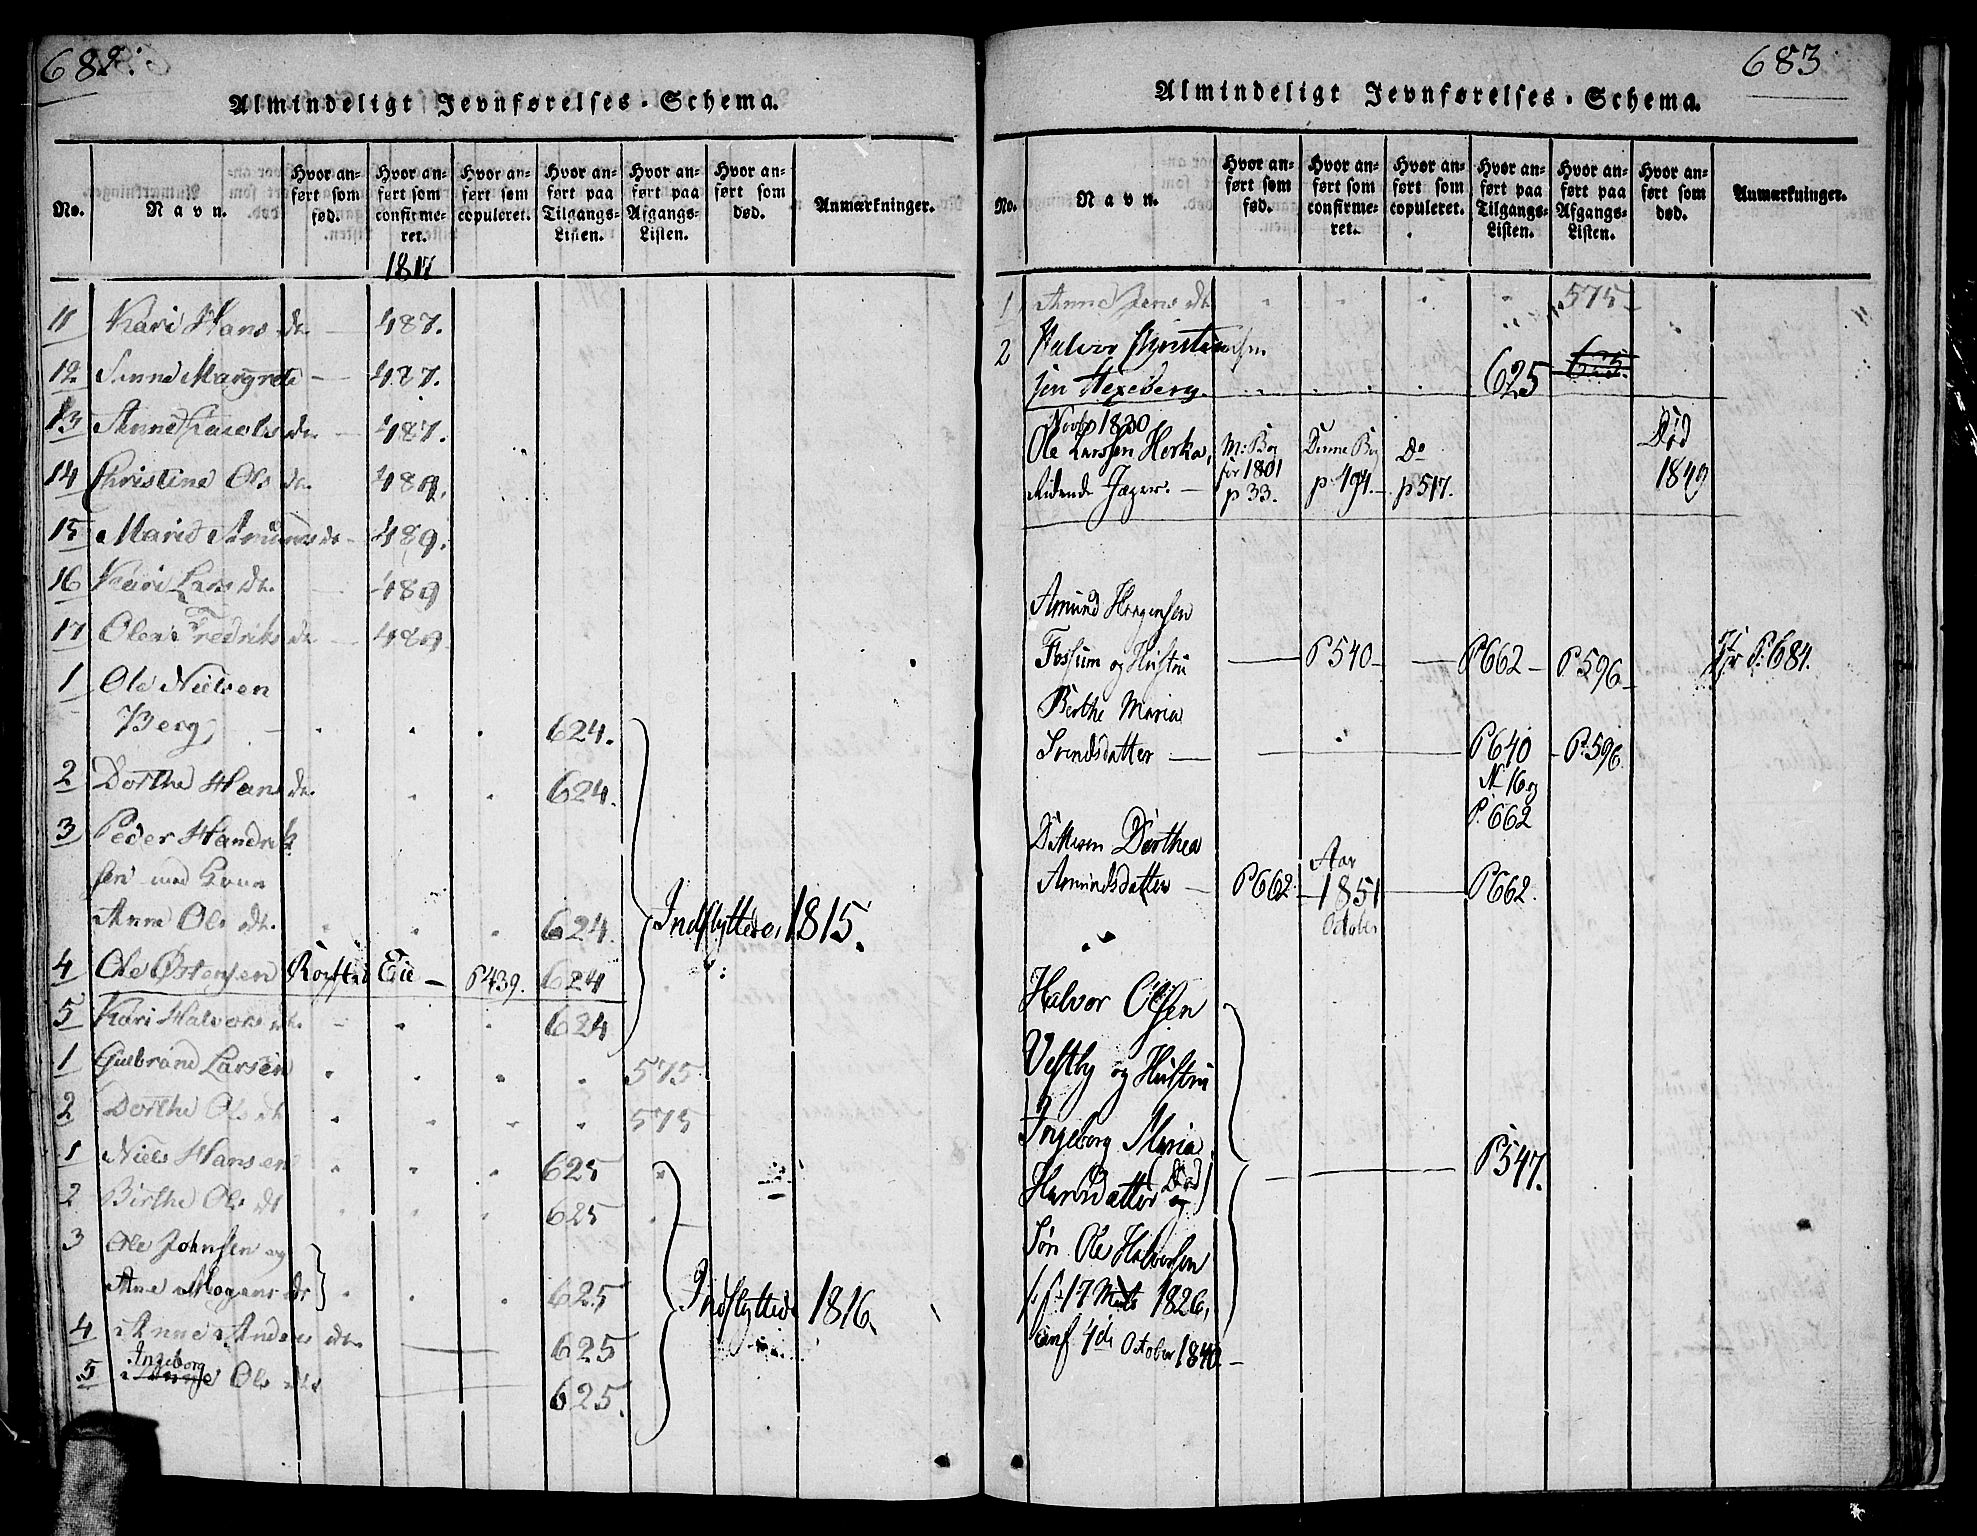 682.
Almindeligt Jevnførelses-Schema.
No.
Navn.
Hvor anført som fød.
Hvor anført som confirmeret.
Hvor anført som copuleret.
Hvor anført paa Tilgangs-Listen.
Hvor anført paa Afgangs-Listen.
Hvor anført som død.
Anmærkninger.
1817
11 Kari Hans dr. — 487.
12. Anne Margrete — 487.
13 Anne dr. — 487.
14 Christine Ols dr. 489.
15 Marie Amunds dr — 489.
16 Kari Lars dr. — 489
17 Olea Fredriks dr — 489
1 Ole Nielsen
Berg, — 624.
2 Dorthe Hans dr. 624.
3 Peder Hendrik
sen med Kone
Anne Ols dr. 624.
4 Ole Østensen Eie — P439. 624
5 Kari Halvors dr. — 624
Indflyttede 1815.
1 Gulbrand Larsen 575
2 Dorthe Ols dr 575
1 Niels Hansen 625
2 Birthe Ols dr 625
3 Ole Johnsen og
Ane Mogens dr 625
4 Anne Anders dr. — 625
5 Ingeborg
Ols dr — 625.
Indflyttede 1816.
683
Almindeligt Jevnførelses-Schema.
No.
Navn.
Hvor anført som fød.
Hvor anført som confirmeret.
Hvor anført som copuleret.
Hvor anført paa Tilgangs-Listen.
Hvor anført paa Afgangs-Listen.
Hvor anført som død.
Anmærkninger.
1 Anne Jens dr 575 —
2 Halvor Christian
sen Hexeberg. 625 625.
Novbr 1830
Ole Larssen Horka, M: Bog Denne Bog Do Død
ridende Jæger. — for 1801 p 494. — p 517. 1849
p 33.
Amund Haagensen
Fossum og Hustru — P 540 — P 662 — P 596 — Jfr P: 684.
Berthe Maria
Svendsdatter — P 640 — P. 596.
N 16 og
P. 662
Datteren Dorthea
Amundsdatter — P 662. Aar 1851 — P 662.
October
Halvor Olsen
Vestby og Hustru
Ingeborg Maria
Hansdatter (Død) — P 547.
og
Søn Ole Halvorsen
f. 17 Marts 1826,
conf 4de October 1840. —